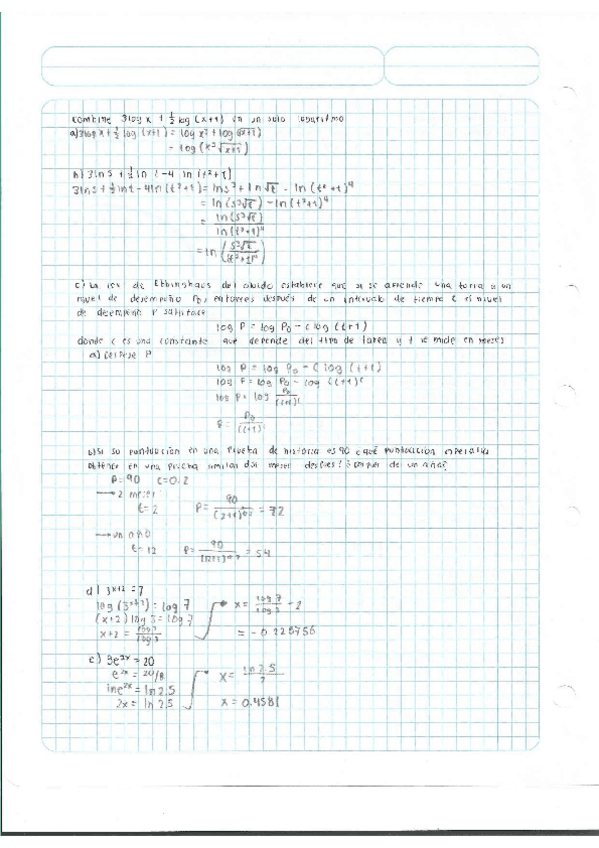 combine 3log x + ½ log (x+1) en un solo logaritmo
a) 3log x + ½ log (x+1) = log x³ + log √(x+1)
= log (x³√x+1)
b) 3 ln s + ½ ln t - 4 ln (t²+1)
3 ln s + ½ ln t - 4 ln (t²+1) = ln s³ + ln √t - ln (t²+1)⁴
= ln (s³√t) - ln (t²+1)⁴
= ln (s³√t) / ln (t²+1)⁴
= ln (s³√t / (t²+1)⁴)
c) La ley de Ebbinghaus del olvido establece que si se aprende una tarea a un
nivel de desempeño P₀, entonces después de un intervalo de tiempo t el nivel
de desempeño P satisface
log P = log P₀ - c log (t+1)
donde c es una constante que depende del tipo de tarea y t se mide en meses
a) Despeje P
log P = log P₀ - c log (t+1)
log P = log P₀ - log (t+1)ᶜ
log P = log P₀ / (t+1)ᶜ
P = P₀ / (t+1)ᶜ
b) Si su puntuación en una prueba de historia es 90 ¿qué puntuación esperaría
obtener en una prueba similar dos meses después? ¿Después de un año?
P=90 c=0.2
→ 2 meses
t=2 P = 90 / (2+1)^0.2 = 72
→ un año
t=12 P = 90 / (12+1) = 54
d) 3^x+2 = 7
log (3^x+2) = log 7
(x+2) log 3 = log 7
x+2 = log 7 / log 3
x = log 7 / log 3 - 2
= -0.228756
e^2x = 20
e^2x = 20/8
ln e^2x = ln 2.5
2x = ln 2.5
x = ln 2.5 / 2
x = 0.4581